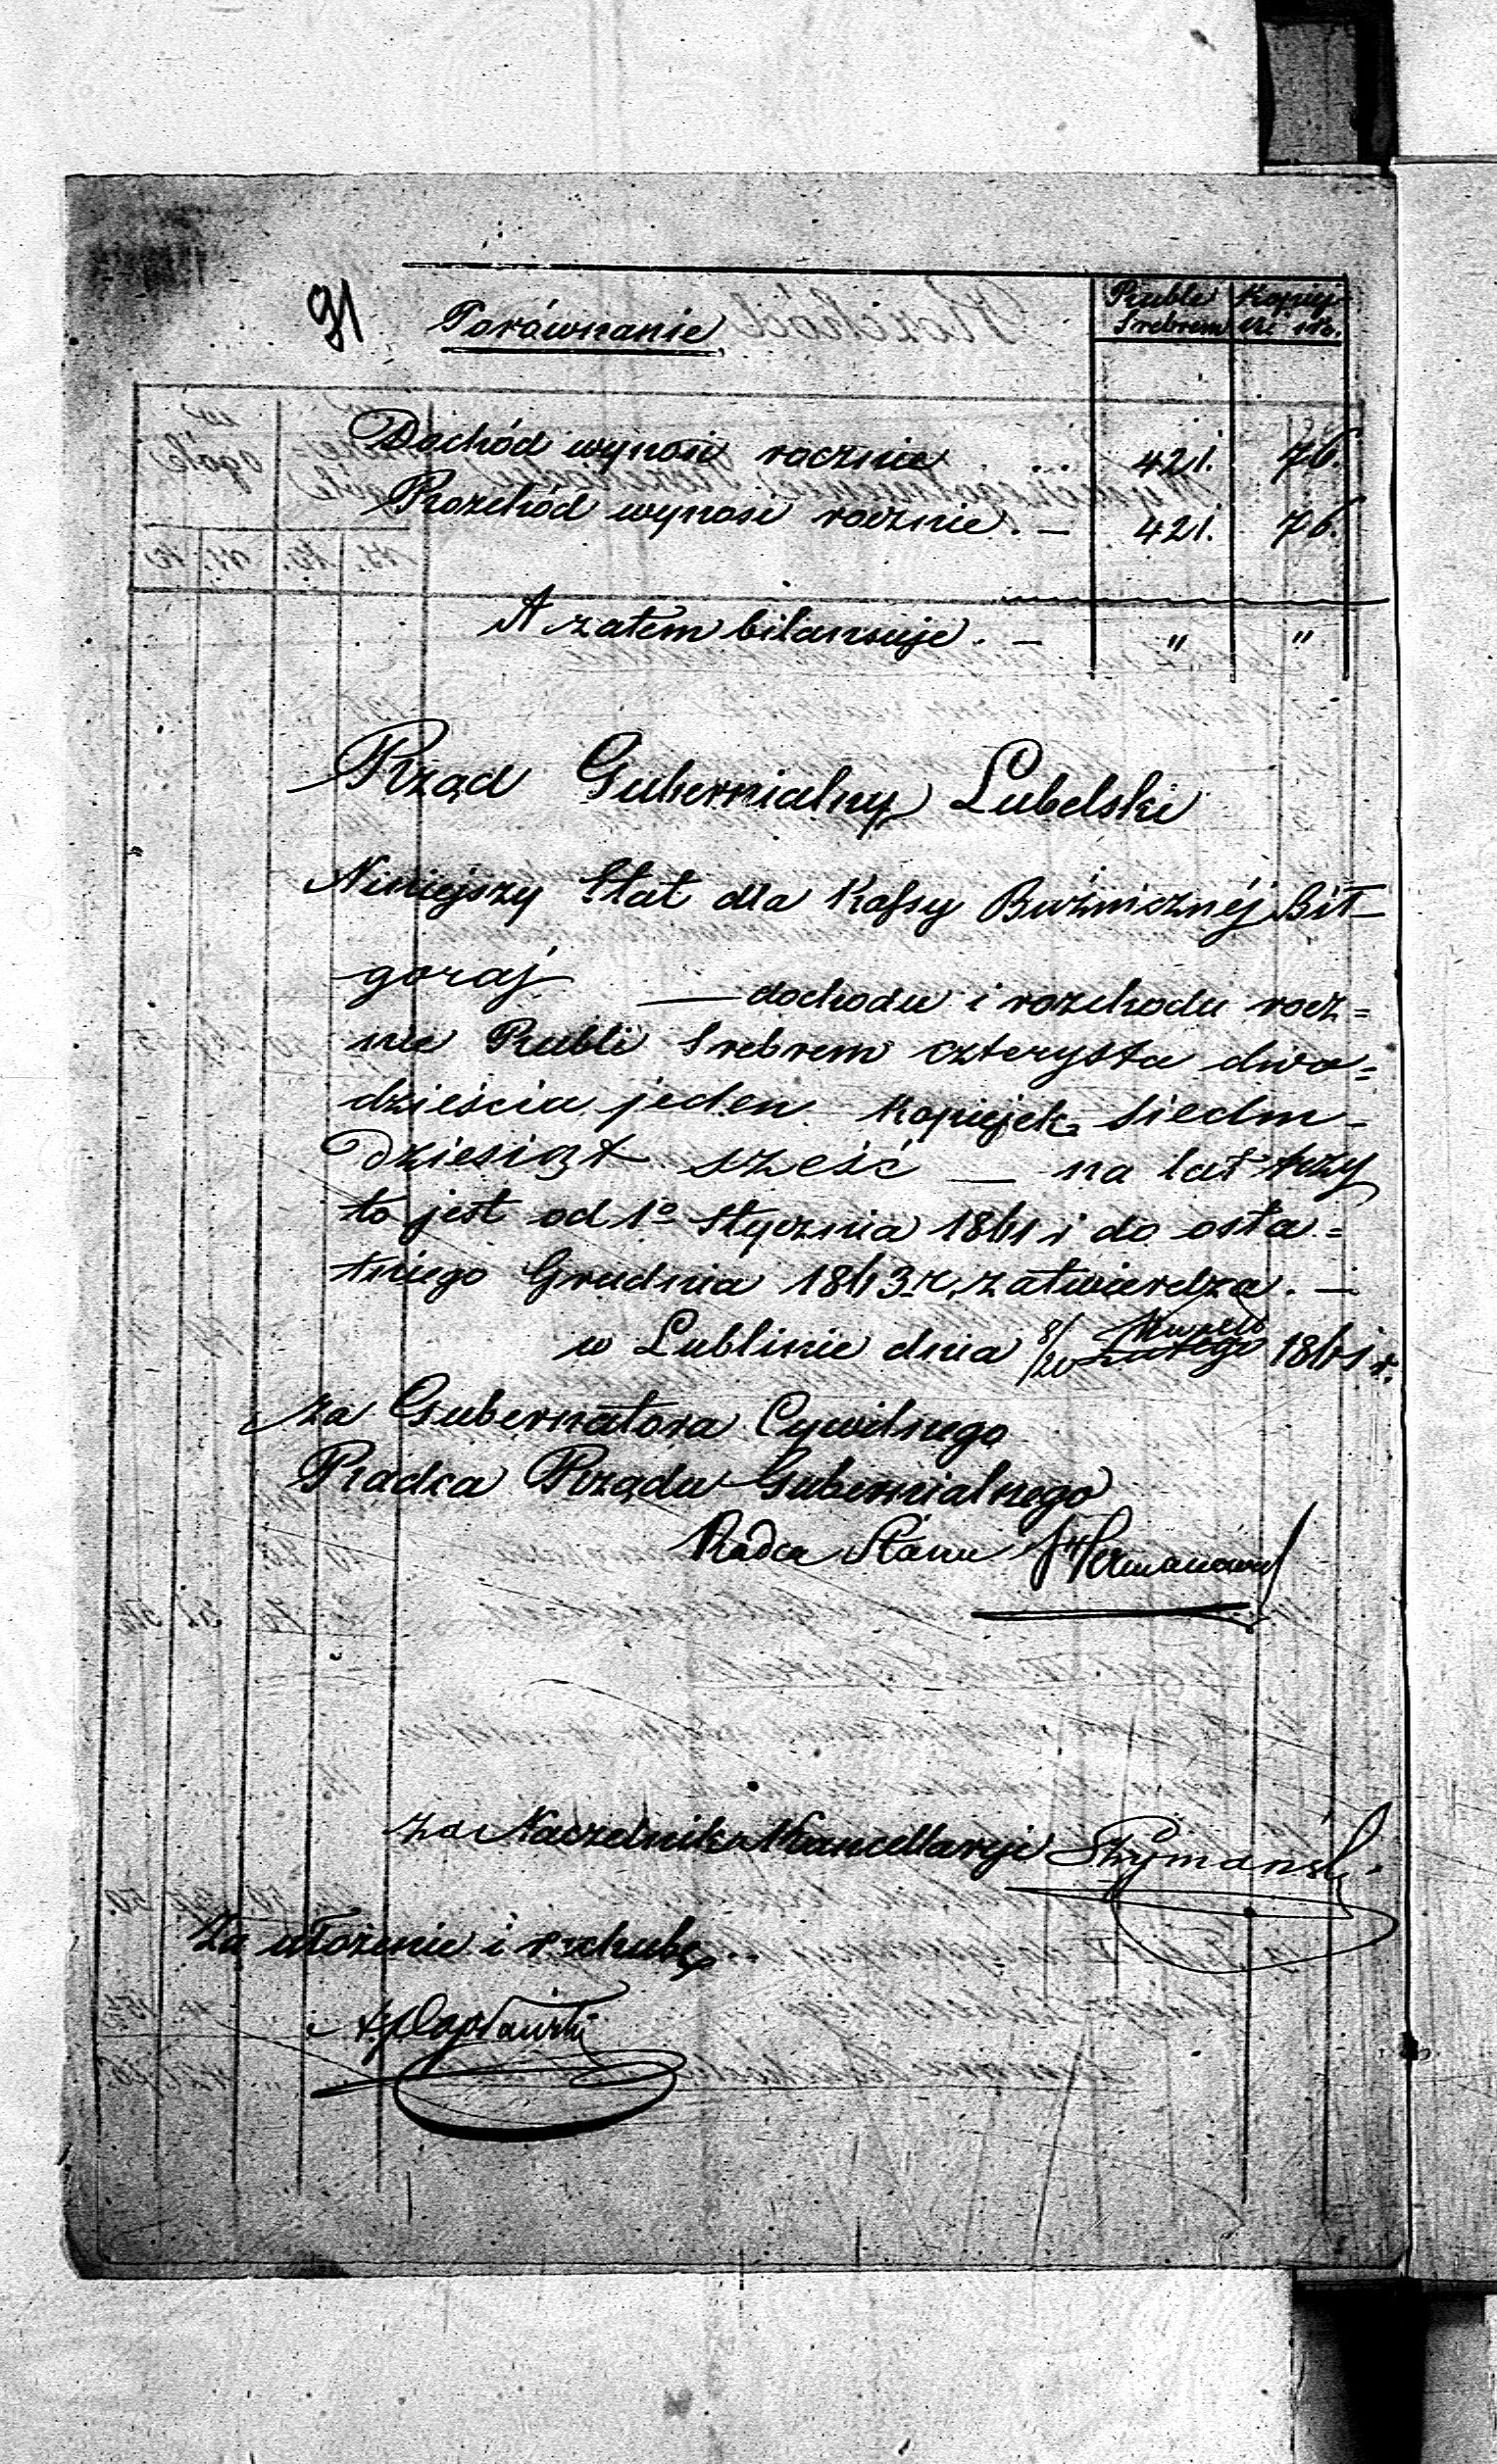 91
Porównanie
Ruble Srebrem
Kopiej ki srb.
Dochód wynosi rocznie . . . 421. 76.
Rozchód wynosi rocznie . — 421. 76.
A zatem bilansuje . — " "
Rząd Gubernialny Lubelski
Niniejszy Etat dla Kassy Bóżnicznéj Bił-
goraj — dochodu i rozchodu rocz=
nie Rubli Srebrem czterysta dwa=
dzieścia jeden Kopiejek Siedm-
dziesiąt sześć — na lat trzy
to jest od 1o Stycznia 1861 r do osta=
tniego Grudnia 1863 r. zatwierdza. —
w Lublinie dnia 8/20 Lutego 1861 r.
za Gubernatora Cywilnego
Radca Rządu Gubernialnego
Radca Stanu
za Naczelnika Kancellaryi Szymański.
Za ułożenie i rachubę